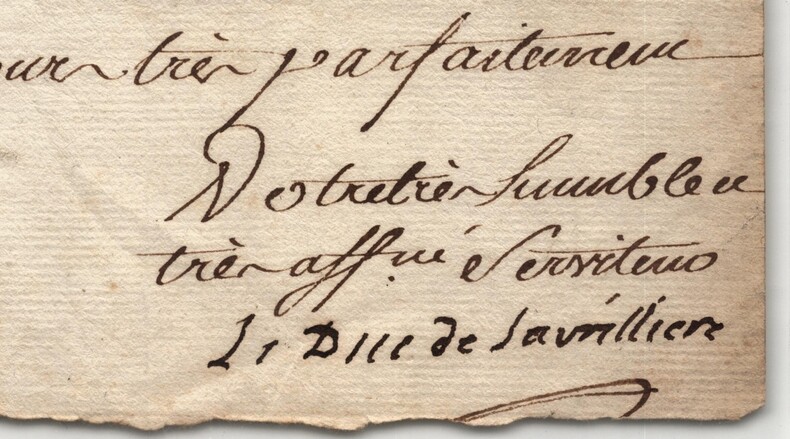 très parfaitement
Votre très humble et
très affné Serviteur
Le Duc de Lavrilliere